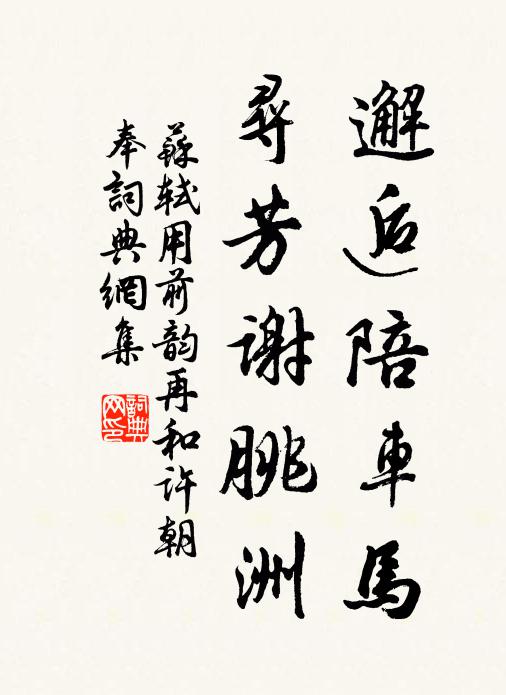 邂逅陪車馬
尋芳謝朓洲
蘇軾用前韵再和許朝
奉詞典網集
詞典网印